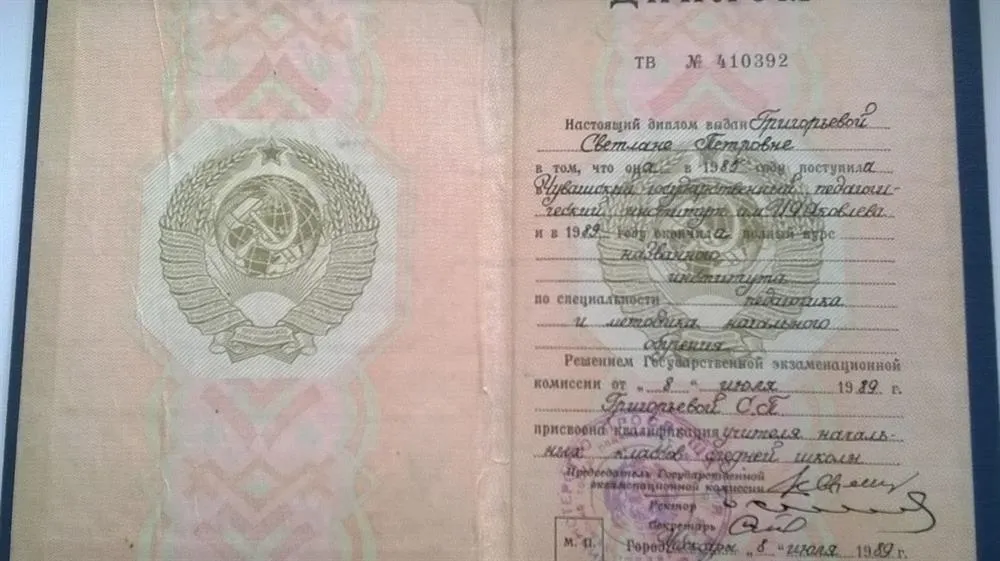 ДИПЛОМ
ТВ № 410392
Настоящий диплом выдан Григорьевой
Светлане Петровне
в том, что она в 1985 году поступила
в Чувашский государственный педагоги-
ческий институт им. И.Я.Яковлева
и в 1989 году окончила полный курс
названного
института
по специальности педагогика
и методика начального
обучения
Решением Государственной экзаменационной
комиссии от „ 8 “ июля 1989 г.
Григорьевой С.П.
присвоена квалификация учителя началь-
ных классов средней школы
Председатель Государственной
экзаменационной комиссии
Ректор
Секретарь
М. П. Город Чебоксары „ 8 “ июля 1989 г.